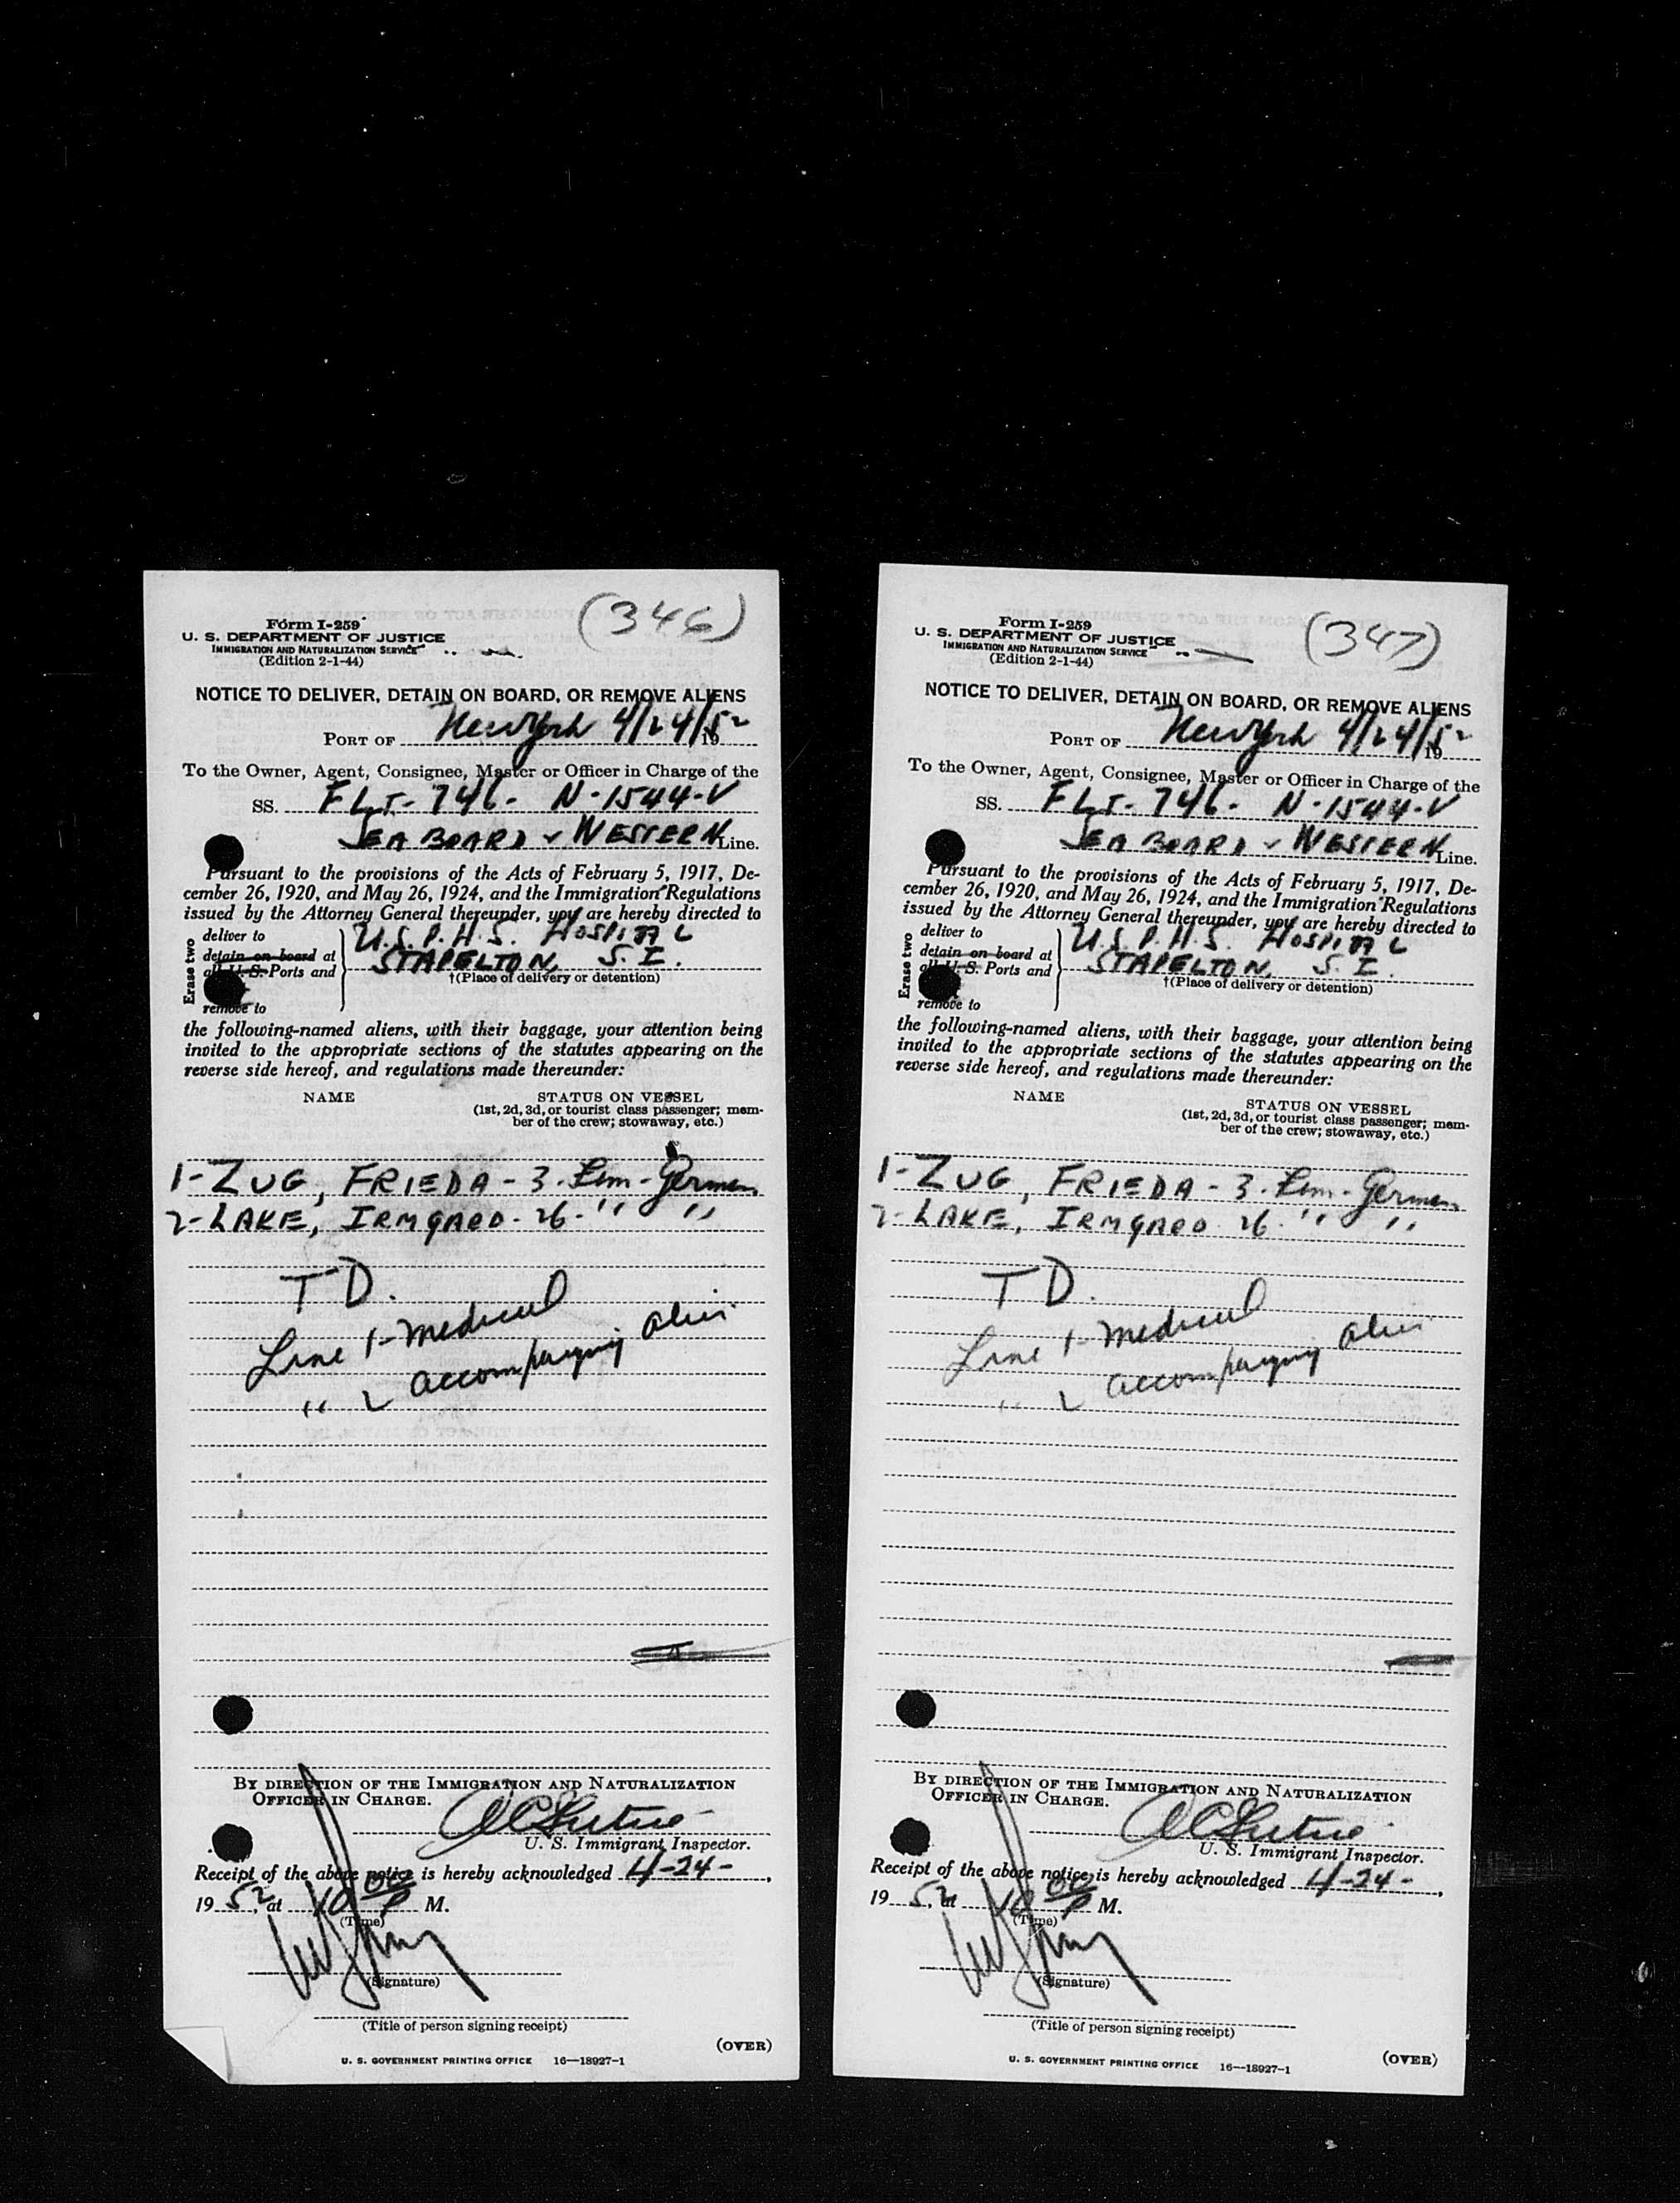 (346)
Form I-259
U. S. DEPARTMENT OF JUSTICE
IMMIGRATION AND NATURALIZATION SERVICE
(Edition 2-1-44)
NOTICE TO DELIVER, DETAIN ON BOARD, OR REMOVE ALIENS
PORT OF New York 4/24/52 19
To the Owner, Agent, Consignee, Master or Officer in Charge of the
SS. FLT- 746- N-1544-V
SEABOARD & WESTERN Line.
Pursuant to the provisions of the Acts of February 5, 1917, De-
cember 26, 1920, and May 26, 1924, and the Immigration Regulations
issued by the Attorney General thereunder, you are hereby directed to
Erase two
deliver to
detain on board at
all U. S. Ports and
remove to
U.S.P.H.S. HOSPITAL
STAPELTON, S.I.
†(Place of delivery or detention)
the following-named aliens, with their baggage, your attention being
invited to the appropriate sections of the statutes appearing on the
reverse side hereof, and regulations made thereunder:
NAME STATUS ON VESSEL
(1st, 2d, 3d, or tourist class passenger; mem-
ber of the crew; stowaway, etc.)
1-ZUG, FRIEDA - 3. Fem- German
2-LAKE, IRMGARD- 26- " "
T D.
Line 1- medical
" 2 accompanying alien
BY DIRECTION OF THE IMMIGRATION AND NATURALIZATION
OFFICER IN CHARGE.
U. S. Immigrant Inspector.
Receipt of the above notice is hereby acknowledged 4-24-,
1952, at 10 00 P M.
(Time)
(Signature)
(Title of person signing receipt)
(OVER)
U. S. GOVERNMENT PRINTING OFFICE 16—18927-1
(347)
Form I-259
U. S. DEPARTMENT OF JUSTICE
IMMIGRATION AND NATURALIZATION SERVICE
(Edition 2-1-44)
NOTICE TO DELIVER, DETAIN ON BOARD, OR REMOVE ALIENS
PORT OF New York 4/24/52 19
To the Owner, Agent, Consignee, Master or Officer in Charge of the
SS. FLT- 746- N-1544-V
SEABOARD & WESTERN Line.
Pursuant to the provisions of the Acts of February 5, 1917, De-
cember 26, 1920, and May 26, 1924, and the Immigration Regulations
issued by the Attorney General thereunder, you are hereby directed to
Erase two
deliver to
detain on board at
all U. S. Ports and
remove to
U.S.P.H.S. HOSPITAL
STAPELTON, S.I.
†(Place of delivery or detention)
the following-named aliens, with their baggage, your attention being
invited to the appropriate sections of the statutes appearing on the
reverse side hereof, and regulations made thereunder:
NAME STATUS ON VESSEL
(1st, 2d, 3d, or tourist class passenger; mem-
ber of the crew; stowaway, etc.)
1-ZUG, FRIEDA - 3. Fem- German
2-LAKE, IRMGARD 26- " "
T D.
Line 1- medical
" 2 accompanying alien
BY DIRECTION OF THE IMMIGRATION AND NATURALIZATION
OFFICER IN CHARGE.
U. S. Immigrant Inspector.
Receipt of the above notice is hereby acknowledged 4-24-,
1952, at 10 00 P M.
(Time)
(Signature)
(Title of person signing receipt)
(OVER)
U. S. GOVERNMENT PRINTING OFFICE 16—18927-1